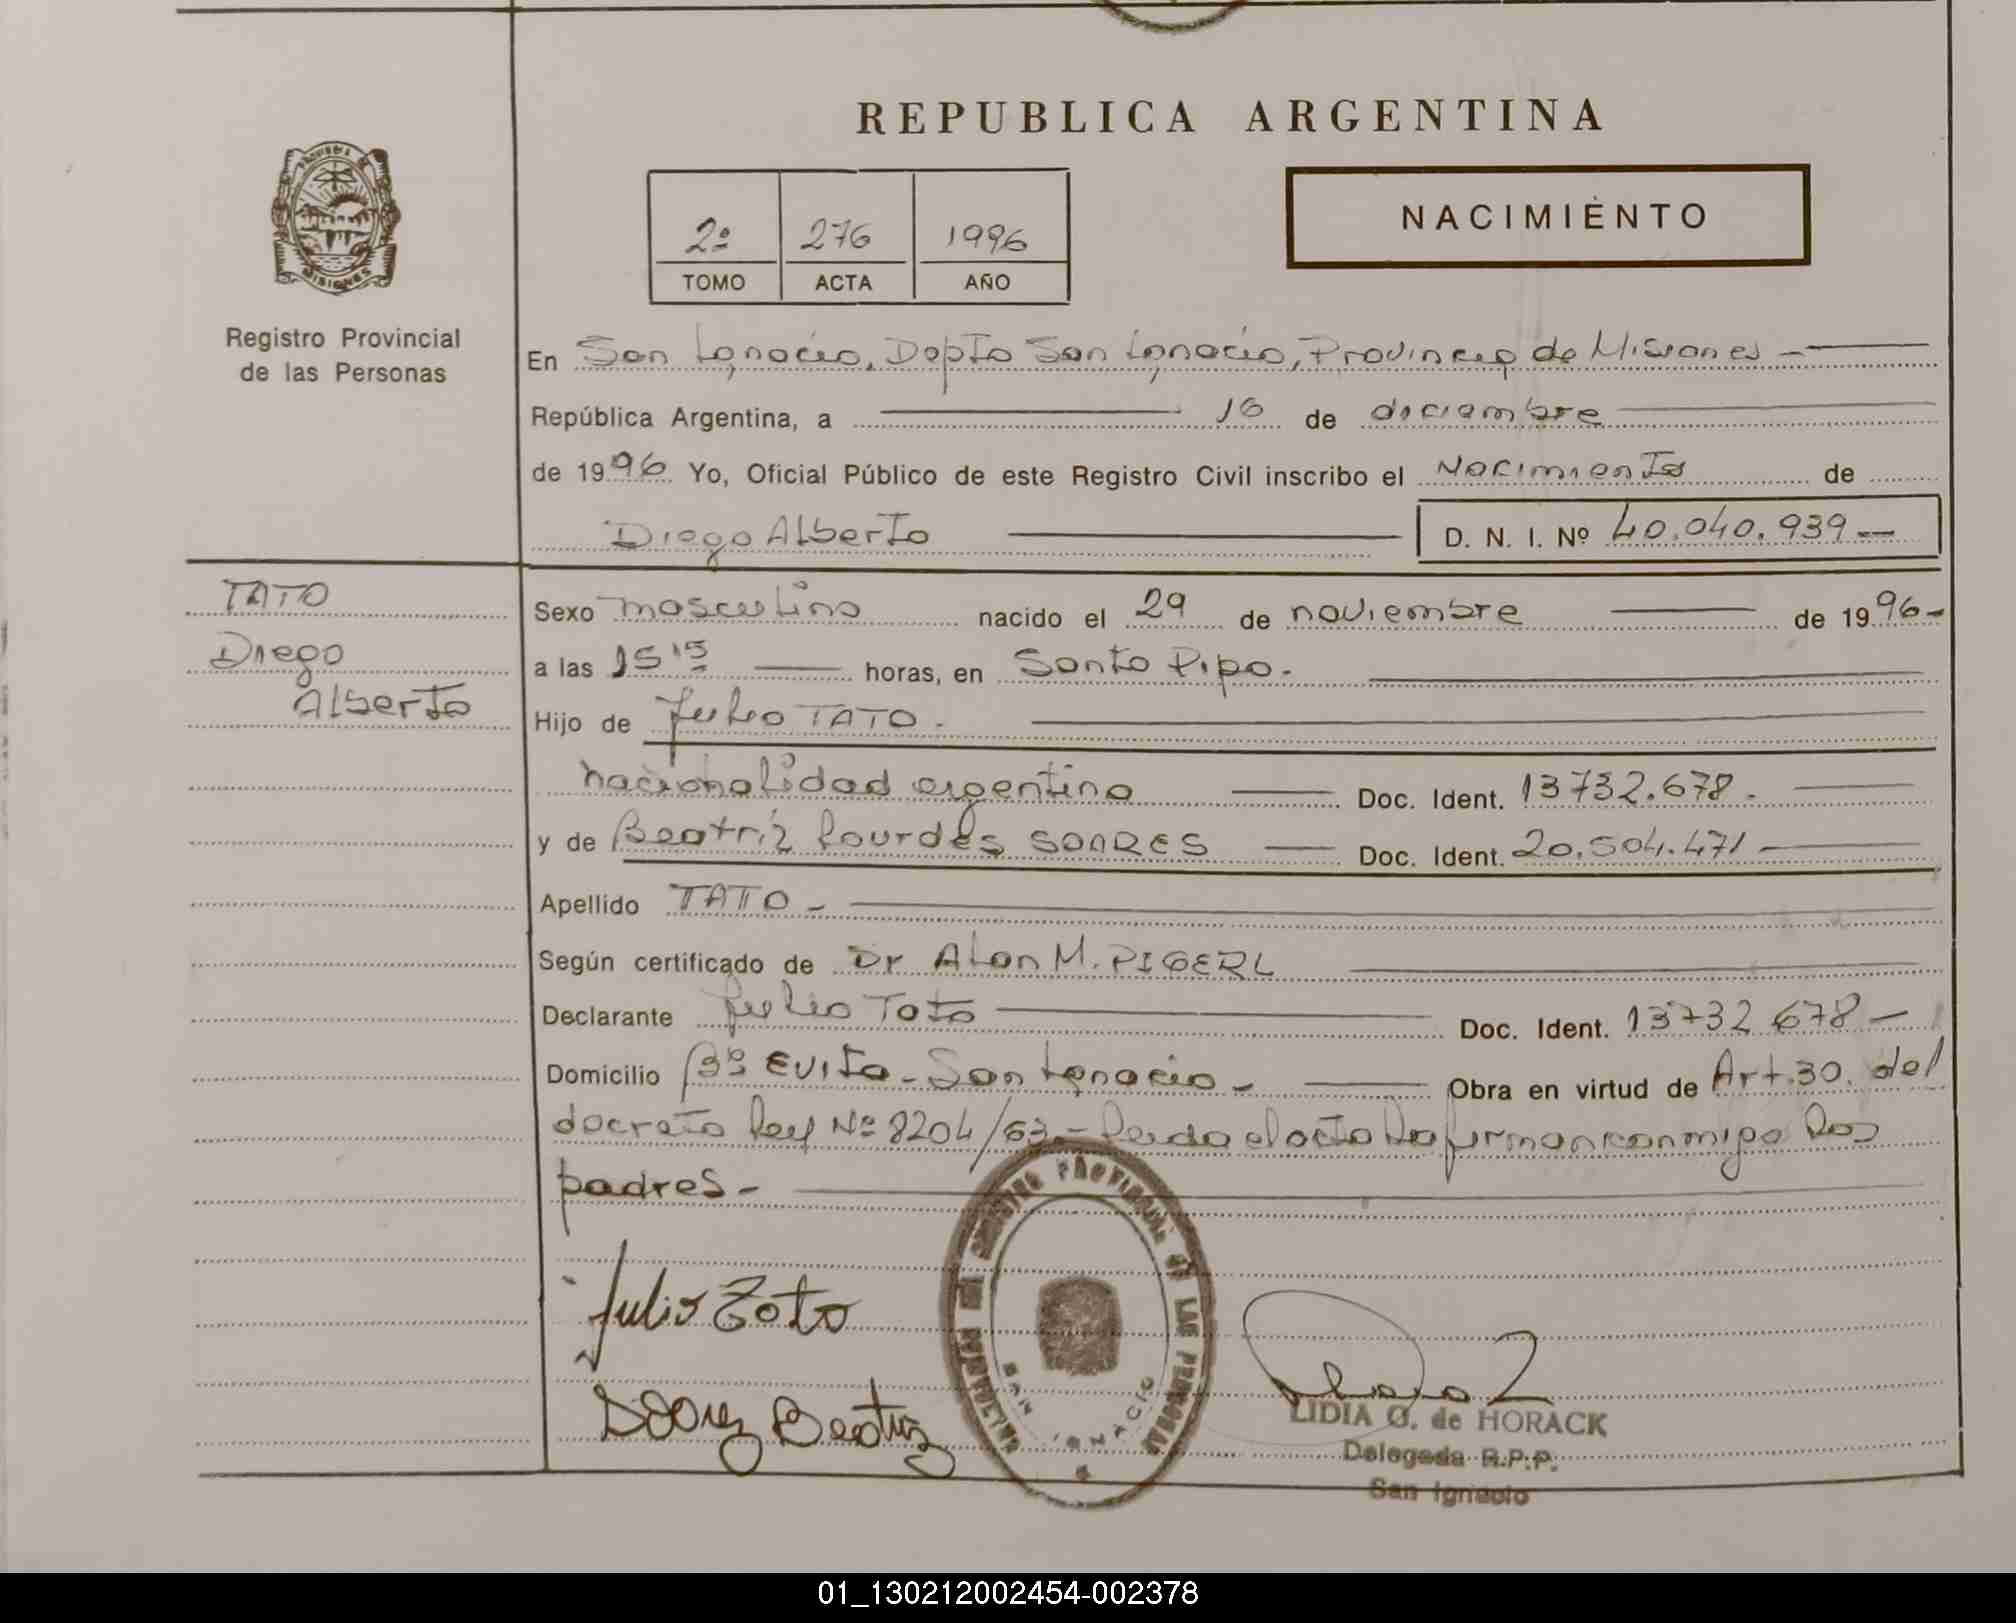 REPUBLICA ARGENTINA
PROVINCIA
MISIONES
Registro Provincial
de las Personas
2º 276 1996
TOMO ACTA AÑO
NACIMIENTO
En San Ignacio, Dpto San Ignacio, Provincia de Misiones —
República Argentina, a — 16 de diciembre —
de 1996 Yo, Oficial Público de este Registro Civil inscribo el Nacimiento de
Diego Alberto — D. N. I. Nº 40.040.939 —
TATO
Diego
Alberto
Sexo masculino nacido el 29 de noviembre — de 1996 -
a las 15 15 — horas, en Santo Pipo. —
Hijo de Julio TATO. —
nacionalidad argentina — Doc. Ident. 13732.678. —
y de Beatriz Lourdes SOARES — Doc. Ident. 20.504.471 —
Apellido TATO - —
Según certificado de Dr Alan M. PIGERL —
Declarante Julio Tato — Doc. Ident. 13732 678 —
Domicilio Bº Evita - San Ignacio - — Obra en virtud de Art. 30. del
decreto ley Nº 8204/63.- Leida el acta la firman conmigo los
padres - —
Julio Tato
Beatriz
REGISTRO PROVINCIAL DE LAS PERSONAS
SAN IGNACIO
LIDIA O. de HORACK
Delegada R.P.P.
San Ignacio
01_130212002454-002378